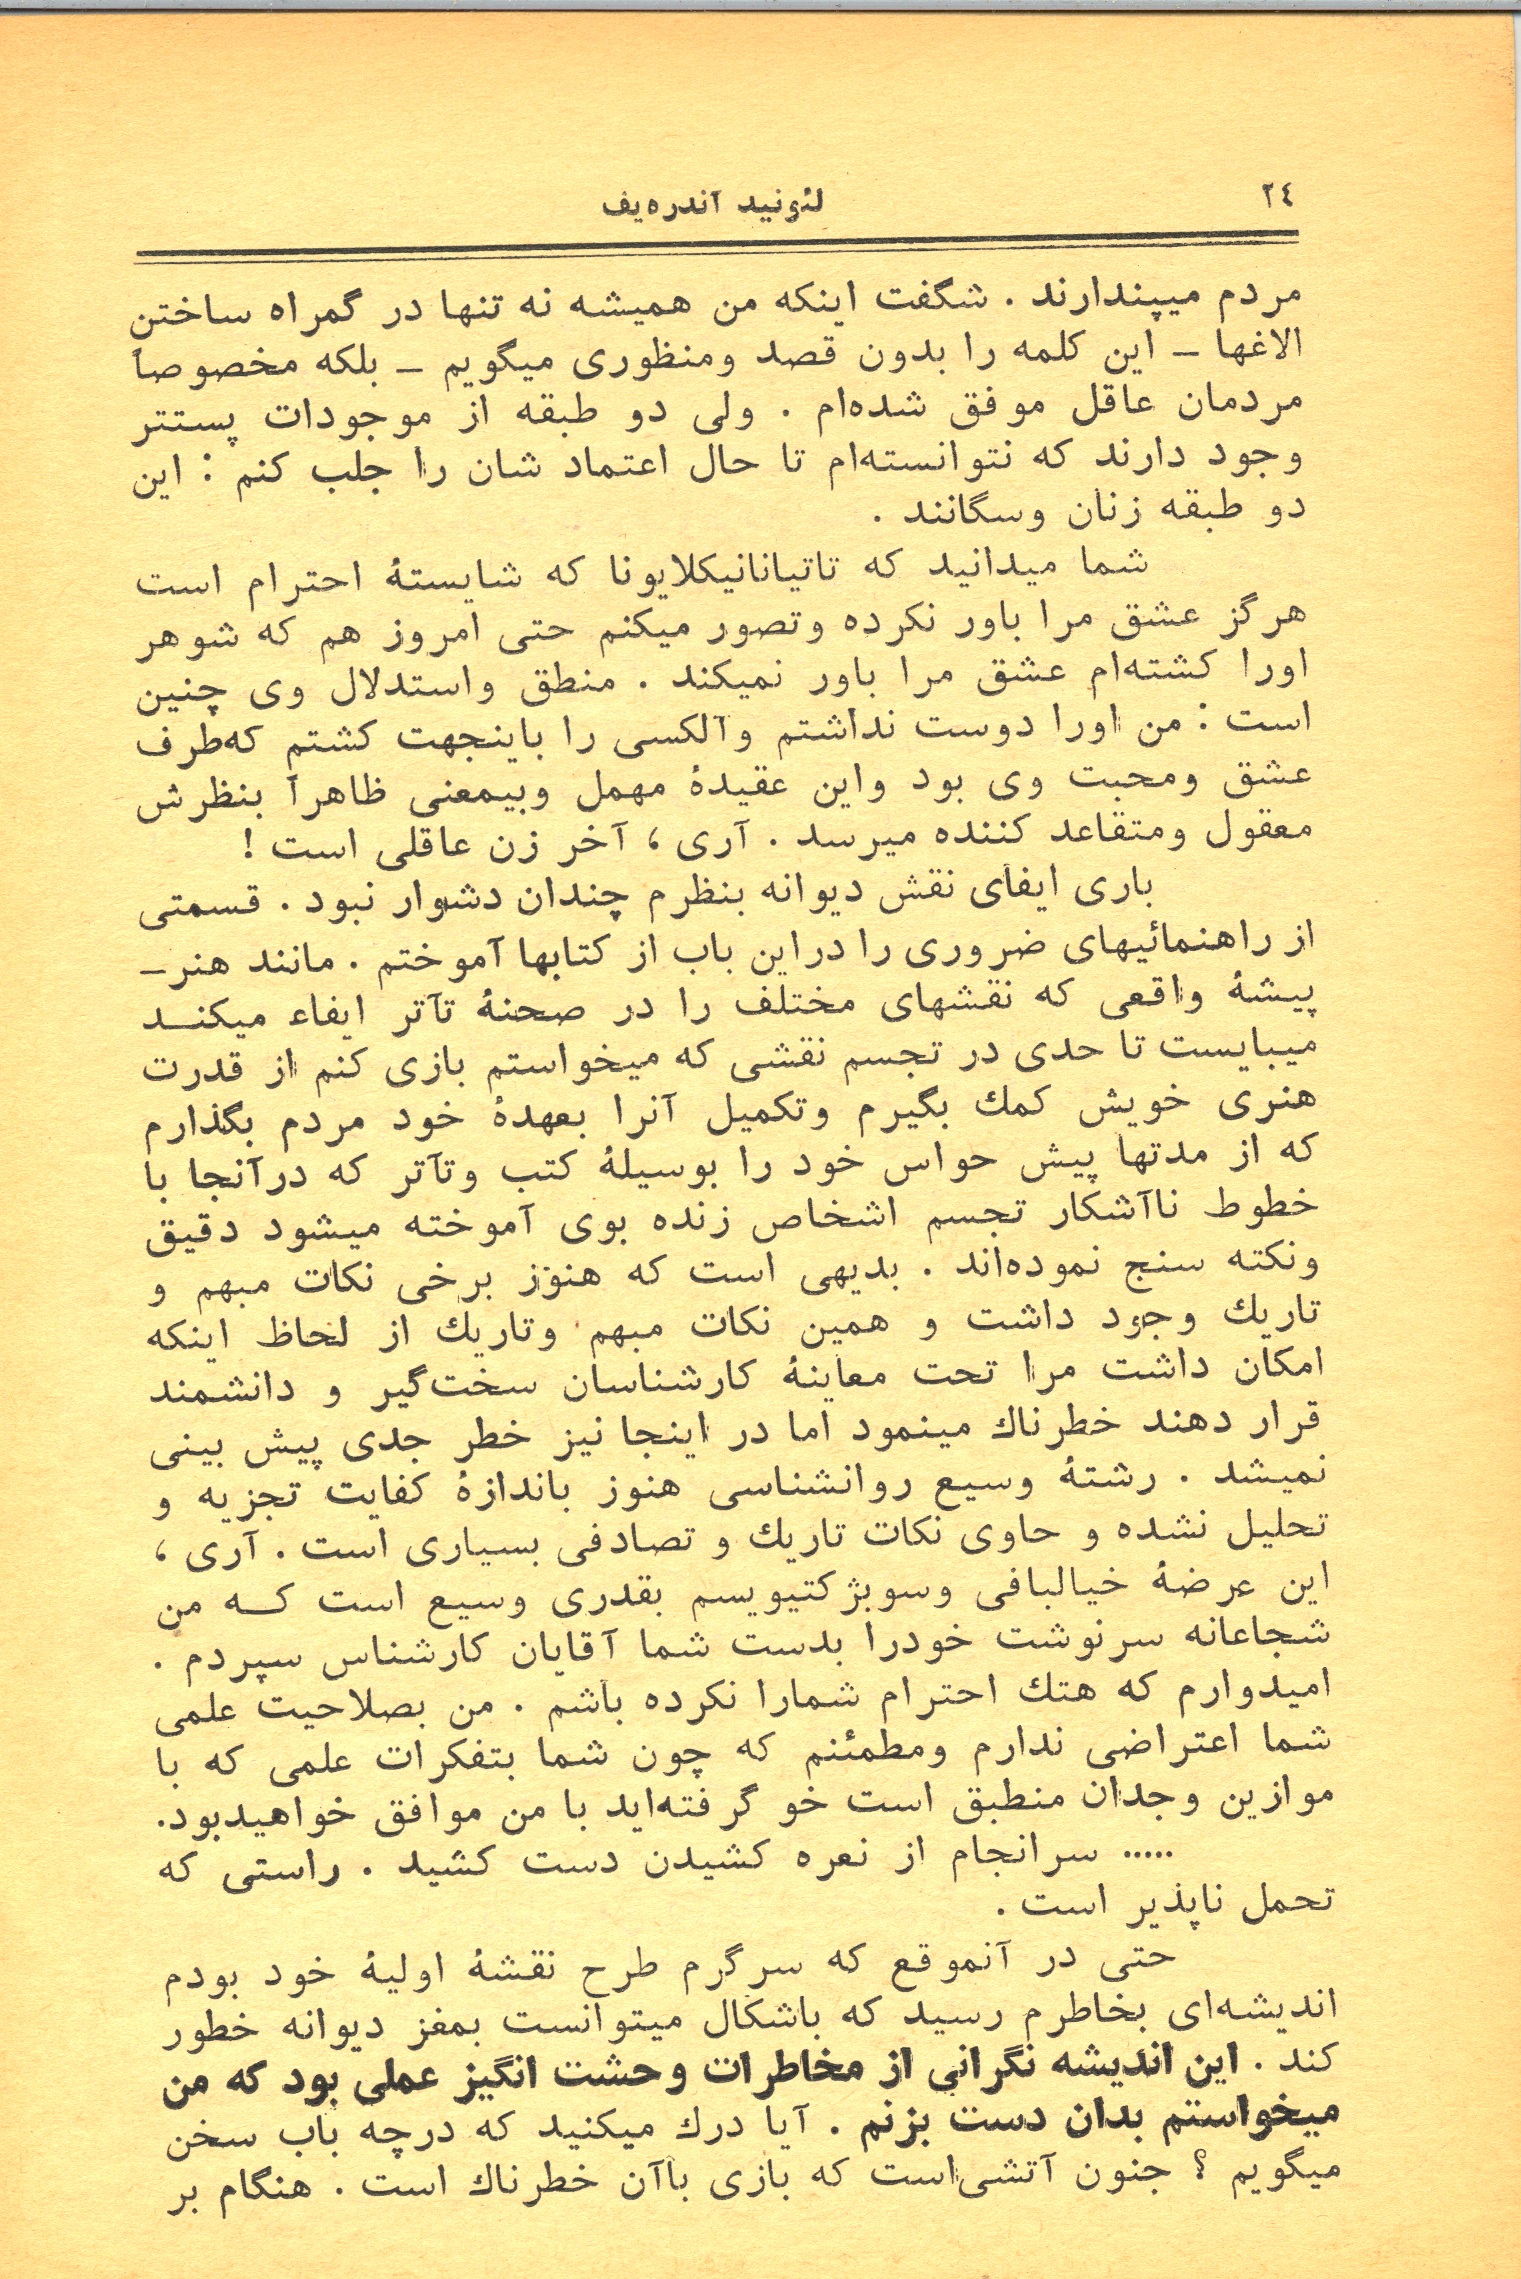 ۲٤
لئونید آندره‌یف
مردم میپندارند . شگفت اینکه من همیشه نه تنها در گمراه ساختن
الاغها ـ این کلمه را بدون قصد ومنظوری میگویم ـ بلکه مخصوصاً
مردمان عاقل موفق شده‌ام . ولی دو طبقه از موجودات پست‌تر
وجود دارند که نتوانسته‌ام تا حال اعتماد شان را جلب کنم : این
دو طبقه زنان وسگانند .
شما میدانید که تاتیانانیکلایونا که شایستهٔ احترام است
هرگز عشق مرا باور نکرده وتصور میکنم حتی امروز هم که شوهر
اورا کشته‌ام عشق مرا باور نمیکند . منطق واستدلال وی چنین
است : من اورا دوست نداشتم وآلکسی را باینجهت کشتم که‌طرف
عشق ومحبت وی بود واین عقیدهٔ مهمل وبیمعنی ظاهراً بنظرش
معقول ومتقاعد کننده میرسد . آری ، آخر زن عاقلی است !
باری ایفای نقش دیوانه بنظرم چندان دشوار نبود . قسمتی
از راهنمائیهای ضروری را دراین باب از کتابها آموختم . مانند هنر-
پیشهٔ واقعی که نقشهای مختلف را در صحنهٔ تآتر ایفاء میکنـد
میبایست تا حدی در تجسم نقشی که میخواستم بازی کنم از قدرت
هنری خویش کمك بگیرم وتکمیل آنرا بعهدهٔ خود مردم بگذارم
که از مدتها پیش حواس خود را بوسیلهٔ کتب وتآتر که درآنجا با
خطوط ناآشکار تجسم اشخاص زنده بوی آموخته میشود دقیق
ونکته سنج نموده‌اند . بدیهی است که هنوز برخی نکات مبهم و
تاریك وجود داشت و همین نکات مبهم وتاریك از لحاظ اینکه
امکان داشت مرا تحت معاینهٔ کارشناسان سخت‌گیر و دانشمند
قرار دهند خطرناك مینمود اما در اینجا نیز خطر جدی پیش بینی
نمیشد . رشتهٔ وسیع روانشناسی هنوز باندازهٔ کفایت تجزیه و
تحلیل نشده و حاوی نکات تاریك و تصادفی بسیاری است . آری ،
این عرضهٔ خیالبافی وسوبژکتیویسم بقدری وسیع است کـه من
شجاعانه سرنوشت خودرا بدست شما آقایان کارشناس سپردم .
امیدوارم که هتك احترام شمارا نکرده باشم . من بصلاحیت علمی
شما اعتراضی ندارم ومطمئنم که چون شما بتفکرات علمی که با
موازین وجدان منطبق است خو گرفته‌اید با من موافق خواهیدبود.
..... سرانجام از نعره کشیدن دست کشید . راستی که
تحمل ناپذیر است .
حتی در آنموقع که سرگرم طرح نقشهٔ اولیهٔ خود بودم
اندیشه‌ای بخاطرم رسید که باشکال میتوانست بمغز دیوانه خطور
کند . این اندیشه نگرانی از مخاطرات وحشت انگیز عملی بود که من
میخواستم بدان دست بزنم . آیا درك میکنید که درچه باب سخن
میگویم ؟ جنون آتشی‌است که بازی باآن خطرناك است . هنگام بر